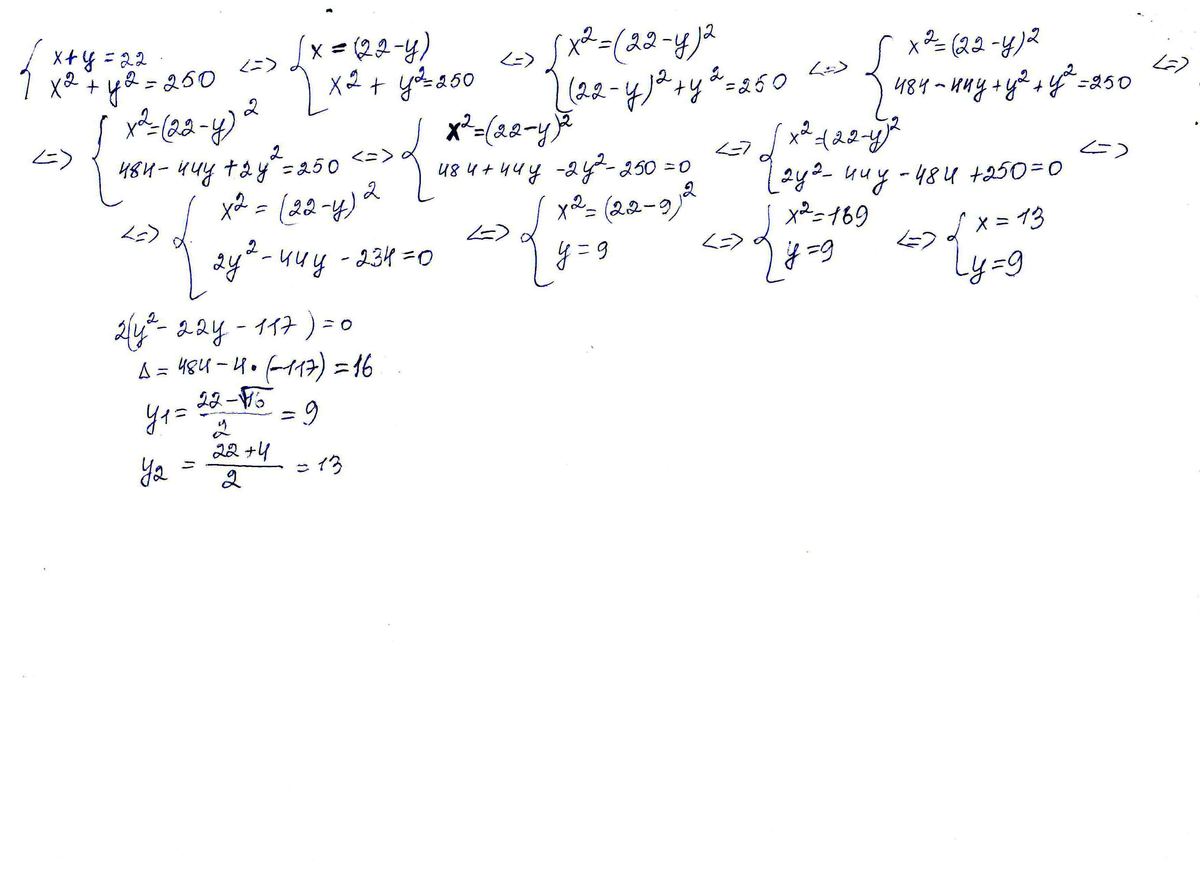 { x+y=22 ; x²+y²=250 <=> { x=(22-y) ; x²+y²=250 <=> { x²=(22-y)² ; (22-y)²+y²=250 <=> { x²=(22-y)² ; 484-44y+y²+y²=250 <=>
<=> { x²=(22-y)² ; 484-44y+2y²=250 <=> { x²=(22-y)² ; 484+44y-2y²-250=0 <=> { x²=(22-y)² ; 2y²-44y-484+250=0 <=>
<=> { x²=(22-y)² ; 2y²-44y-234=0 <=> { x²=(22-9)² ; y=9 <=> { x²=169 ; y=9 <=> { x=13 ; y=9
2(y²-22y-117)=0
Δ=484-4•(-117)=16
y1=(22-√16)/2=9
y2=(22+4)/2=13